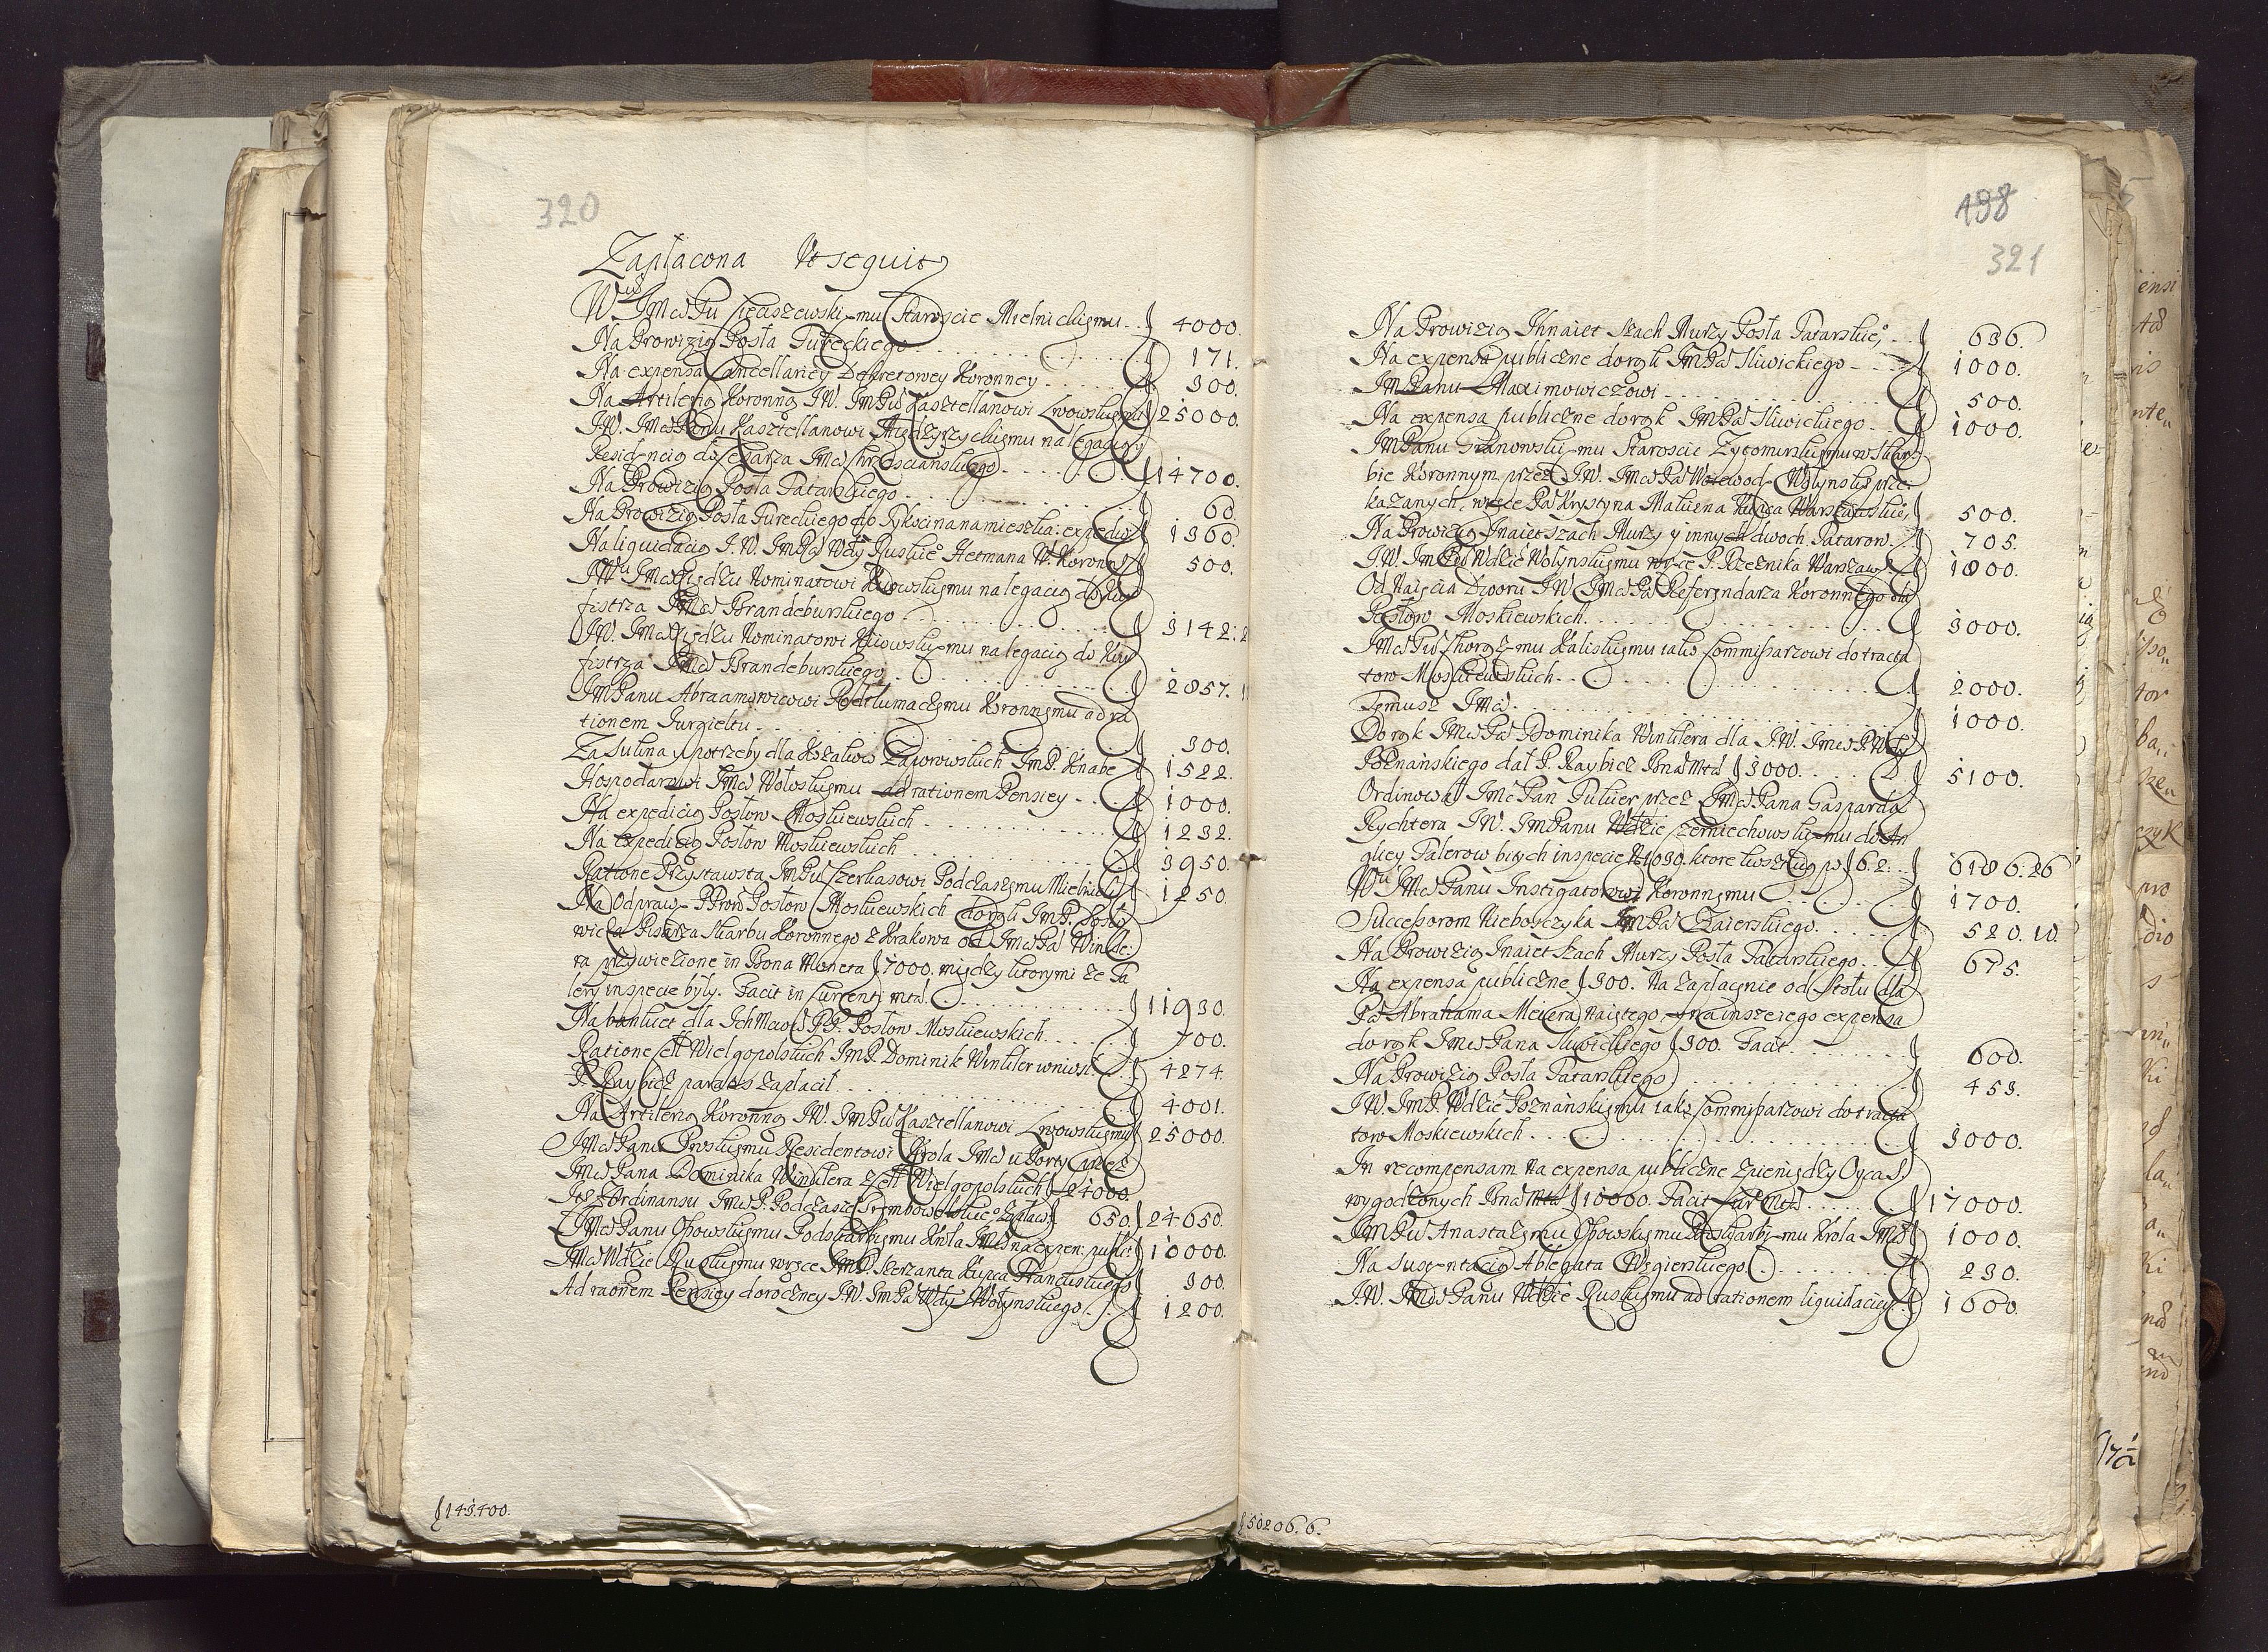 320
Zapłacona Ut sequit
Wu JMści Pu Cieciszewski-mu Staroscie Mielnickiemu . . f 4000.
Na Prowizią Posła Tureckiego . . . 171.
Na expensa Cancellariey Dekretowey Koronney . . . 300.
Na Artilerią Koronną JW. JmPu Kasztellanowi Lwowskiemu 25000.
J.W. JMści Panu Kasztellanowi Międzyrzyckiemu na legacią y
Residencią do Cesarza JMci Chrzescianskiego . . . f 14700.
Na Prowizią Posła Tatarskiego . . . 60.
Na Prowizią Posła Tureckiego do Tykocina na mieszka: expedio 1360.
Na liquidacią J.W. JmPa Wdy Ruskie° Hetmana W. Koronn 500.
JWu JMci Xiędzu Nominatowi Kiiowskiemu na legacią do Kur
firstrza JMci Brandeburskiego . . . 3142:2
JW. JMci Xiędzu Nominatowi Kiiowsku-mu na legacią do Kur
firstrza JMci Brandeburskiego . . . 2857.
JmPanu Abraamowicowi Podtlumaczemu Koronnemu ad ra
tionem Jurgieltu . . . 300.
Za Sulina y potrzeby dla Kozakow Zaporowskich JmP. Knabe 1522.
Hospodarowi JMci Wołoskiemu ad rationem Pensiey . . . 1000.
Na expedicią Posłow Moskiewskich . . . 1232.
Na expedicią Posłow Moskiewskich . . . 3950.
Ratione Przystawsta JmPu Czerkasowi Podczaszemu Mielnic 1250.
Na Odpraw- PPow Posłow Moskiewskich do rąk JmP.
wicza Pisarza Skarbu Koronnego z Krakowa od JMci Pa Winkle-
ra przywiezione in Bona Moneta f 7000. między ktorymi ze Ta
lery in specie były. Facit in Currenti mtâ . . . f 11930.
Na bankiet dla Ich Mciow PP. Posłow Moskiewskich . . . 700.
Ratione Cell Wielgopolskich JmP. Dominik Winkler wniosł 4274.
P. Raybicz para zł zapłacił . . . 4001.
Na Artilerią Koronną JW. JmPu Kasztellanowi Lwowskiemu 25000.
JMci Panu Proskiemu Residentowi Krola JMci u Porty przez
JMci Pana Dominika Winklera z Cell Wielgopolskich f 24000.
Ite z Ordinansu JMci P. Podczasze° Trembowelskie° zapłac f 650. f 24650.
JMci Panu Opowskiemu Podskarbiemu Krola JMci na expen: publi: 10000.
JMci Wdzie Ruskiemu wręce JmP. Szerzanta Kupca Francuskiego 300
Ad raonem Pensiey doroczney J.W. JmPa Wdy Wołynskiego . f 1200.
f 143.400.
198
321
Na Prowizią Jhnaiet Szach Murzy Posła Tatarskie° . . f 636.
Na expensa publiczne do rąk JmPa Sliwickiego . . . 1000.
JmPanu Maximowiczowi . . . 500.
Na expensa publiczne do rąk JmPa Sliwickiego . . 1000.
JmPanu Granowski-mu Staroscie Zytomirskiemu w Skar-
bie Koronnym przez J.W. JMci Pa Woiewodę Wołynskie prze-
kazanych, wręce Pa Krystyna Makiena Kupca Warszawskie°, 500.
Na Prowizią Jnaiet Szach Murzy y innych dwoch Tatarow . 705.
J.W. JmPu Wdzie Wołynskiemu wręce P. Rzeznika Warszaw. 1800.
Od Naięcia Dworu JW JMci Pa Referendarza Koronnego dla
Posłow Moskiewskich . . . 3000.
JMci Pu Chorąże-mu Kaliskiemu iako Commissarzowi do tracta
tow Moskiewskich . . . 2000.
Temusz JMci . . . 1000.
Do rąk JMci Pa Dominika Winklera dla J.W. JMci P. Wdy
Poznańskiego dał P. Raybicz Bnâ Mtâ f 3000. . . . 5100.
Ordinował JMc Pan Tuluer przez JMci Pana Gaspara
Rychtera J.W. JmPanu Wdzie Czerniechowsku-mu do An
gliey Talerow bitych in specie N 1030. ktore kosztuią po f 6.2: . f 6186:26
Wu JMci Panu Instigatorowi Koronnemu . . . 1700.
Successorom Nieboszczyka JmPa Zaierskiego . . . 520. 10.
Na Prowizią Jnaiet Szach Murzy Posła Tatarskiego . . 675.
Na expensa publiczne f 300. Na zapłacenie od Stołu dla
Pa Abrahama Meiera naiętego, y na inszeiego expensa
do rąk JMci Pana Sliwickiego f 300. Facit . . . 600.
Na Prowizią Posła Tatarskiego . . . 453.
J.W. JmP. Wdzie Poznańskiemu iako Commissarzowi do tracta
tow Moskiewskich . . . 3000.
In recompensam na expensa publiczne z pieniędzy Oyca S.
wygodzonych Bnâ Mtâ f 10000. Facit Cur Mtâ . . . f 17000.
JmPu Anastazemu Opowskiemu Podskarbi-mu Krola JMci 1000.
Na Sustentacią Ablegata Węgierskiego . . . 230.
J.W. JMci Panu Wdzie Ruskiemu ad rationem liquidaciey . f 1600.
f 50206.6.